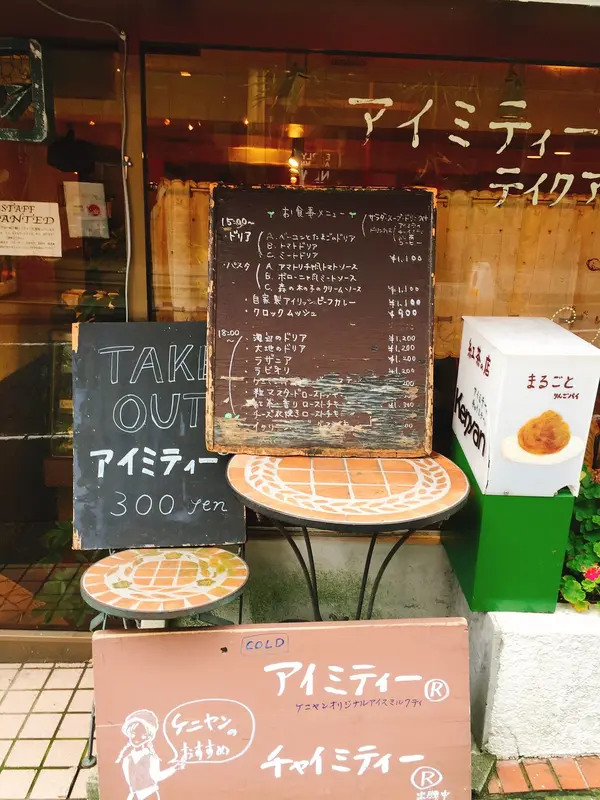 STAFF
WANTED
アイミティー
テイクア
お食事メニュー
サラダ・スープ・ドリンク付
15:00〜
・ドリア
A. ベーコンとたまごのドリア
B. トマトドリア
C. ミートドリア
¥1,100
・パスタ
A. アマトリチャーナトマトソース
B. ボローニャ風ミートソース
C. 森の木の子のクリームソース
¥1,100
・自家製アイリッシュビーフカレー
¥1,100
・クロックムッシュ
¥900
18:00〜
・渚辺のドリア ¥1,200
・大地のドリア ¥1,200
・ラザニア ¥1,200
・ラビオリ ¥1,200
粒マスタードロースト
紅茶香りローストチキ
チーズ
TAKE
OUT
アイミティー
300 yen
紅茶の店
Kenyan
まるごと
りんごパイ
COLD
アイミティー®
ケニヤンオリジナルアイスミルクティ
ケニヤンの
おすすめ
チャイミティー®